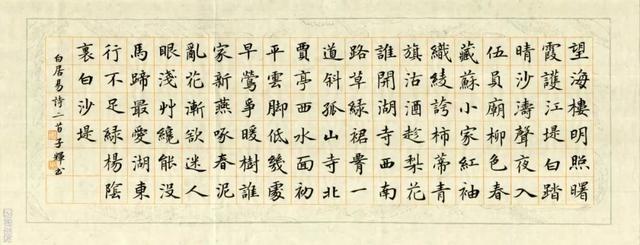 望海樓明照曙
霞護江堤白踏
晴沙濤聲夜入
伍員廟柳色春
藏蘇小家紅袖
織綾誇柿蒂青
旗沽酒趁梨花
誰開湖寺西南
路草綠裙腰一
道斜孤山寺北
賈亭西水面初
平雲脚低幾處
早鶯爭暖樹誰
家新燕啄春泥
亂花漸欲迷人
眼淺艸纔能沒
馬蹄最愛湖東
行不足綠楊陰
裏白沙堤
白居易詩二首子輝書